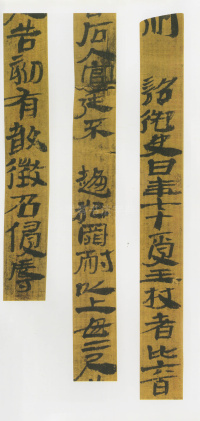 制 詔御史曰年七十受王杖者比六百
百石入官廷不 趨犯罪耐以上毋二尺告
尺告劾有敢徵召侵辱